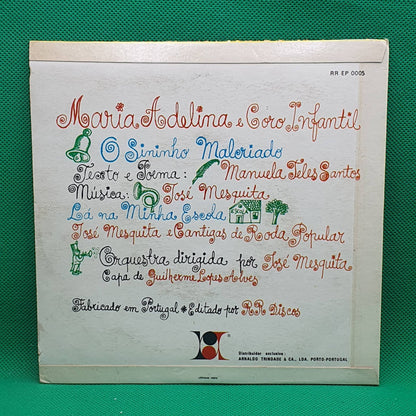 RR EP 0005
Maria Adelina e Coro Infantil
O Sininho Malcriado
Texto e Poema: Manuela Teles Santos
Música: José Mesquita
Lá na Minha Escola
José Mesquita e Cantigas de Roda Popular
Orquestra dirigida por José Mesquita
Capa de Guilherme Lopes Alves
Fabricado em Portugal * Editado por RR Discos
Distribuidor exclusivo:
ARNALDO TRINDADE & CA., LDA. PORTO-PORTUGAL